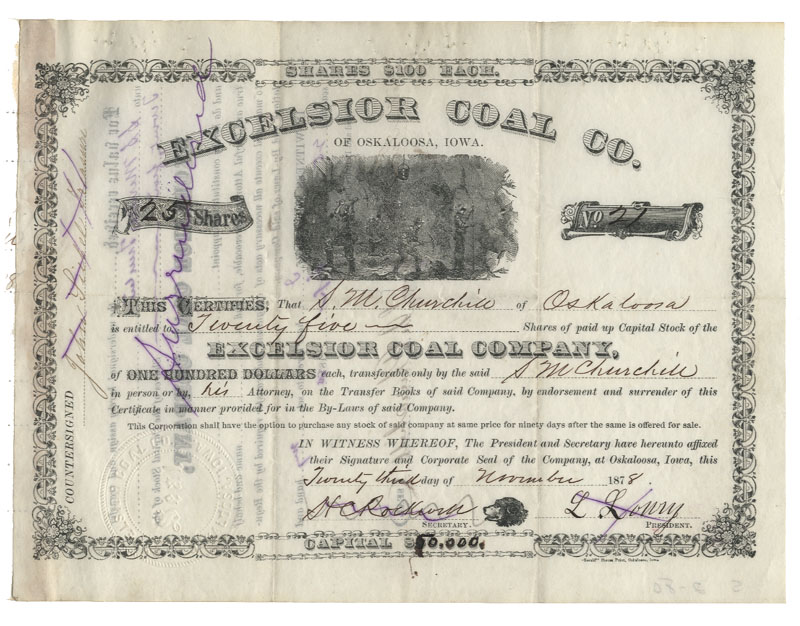 SHARES $100 EACH.
EXCELSIOR COAL CO.
OF OSKALOOSA, IOWA.
25 Shares
No 21
THIS CERTIFIES, That S. M. Churchill of Oskaloosa
is entitled to Twenty five Shares of paid up Capital Stock of the
EXCELSIOR COAL COMPANY,
of ONE HUNDRED DOLLARS each, transferable only by the said S M Churchill
in person or by his Attorney, on the Transfer Books of said Company, by endorsement and surrender of this
Certificate in manner provided for in the By-Laws of said Company.
This Corporation shall have the option to purchase any stock of said company at same price for ninety days after the same is offered for sale.
IN WITNESS WHEREOF, The President and Secretary have hereunto affixed
their Signature and Corporate Seal of the Company, at Oskaloosa, Iowa, this
Twenty third day of November 1878.
L Lowry
SECRETARY.
PRESIDENT.
CAPITAL $50,000.
COUNTERSIGNED
Surrendered